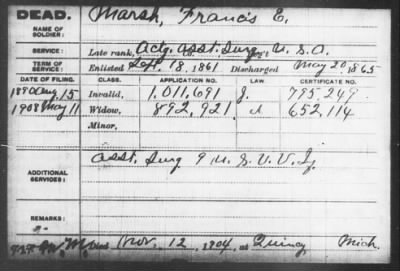 DEAD.
NAME OF SOLDIER: Marsh, Francis E.
SERVICE: Late rank, Actg. Asst. Surg. U. S. A.
TERM OF SERVICE: Enlisted Sept. 18, 1861 Discharged May 20, 1865
DATE OF FILING. CLASS. APPLICATION NO. LAW. CERTIFICATE NO.
1890 Aug. 15 Invalid, 1,011,691 J. 795,249
1908 May 11 Widow, 892,921 652,114
Minor,
ADDITIONAL SERVICES: Asst. Surg 9 U. S. V. V. Iy.
REMARKS:
Died Nov. 12, 1904, at Quincy Mich.